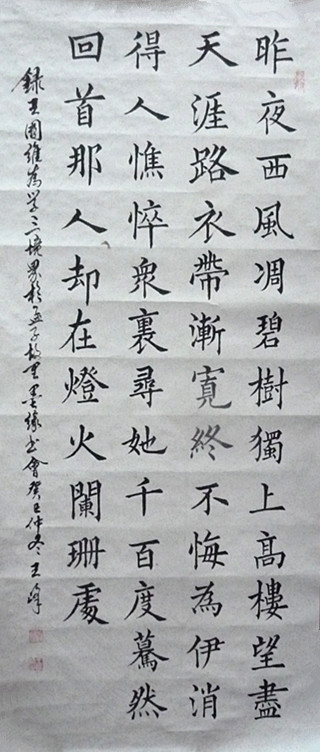 昨夜西風凋碧樹獨上高樓望盡
天涯路衣帶漸寬終不悔為伊消
得人憔悴衆裏尋她千百度驀然
回首那人却在燈火闌珊處
錄王國維為學三境界於孟子故里墨緣書會癸巳仲冬王峰